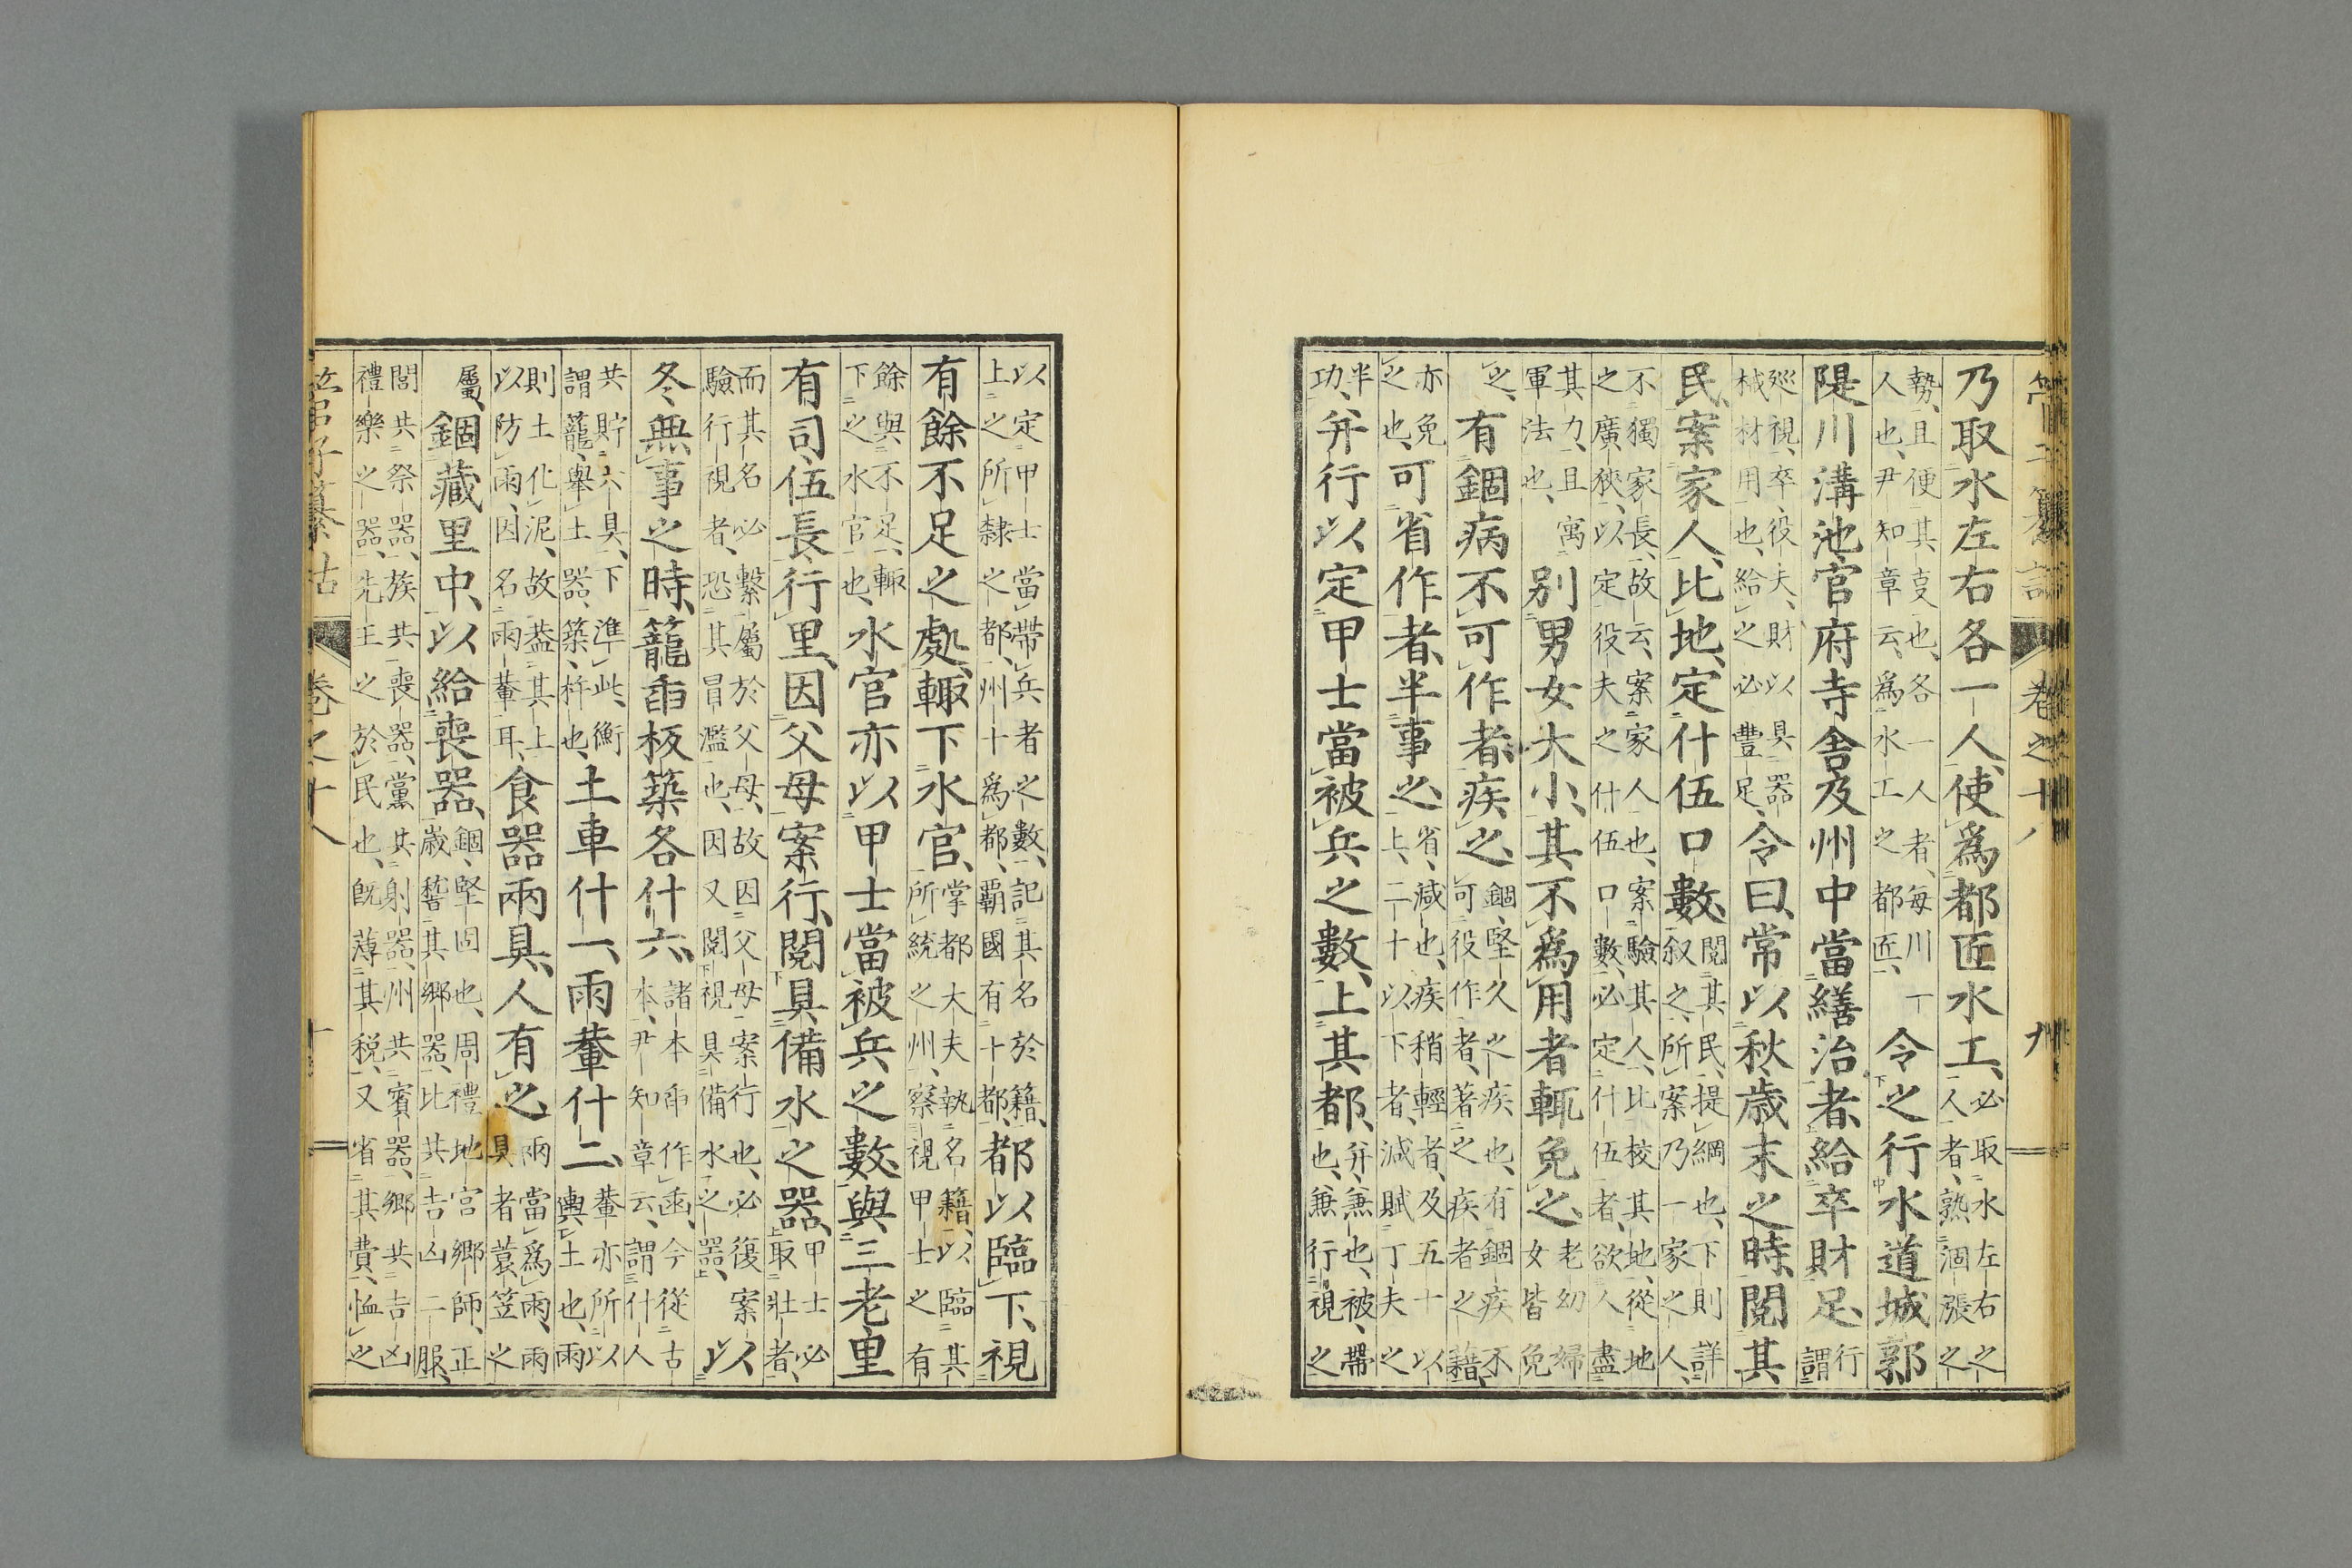 管子纂詁 卷之十八 九
乃取水左右各一人、使爲都匠水工、必取水左右之人者、熟涸漲之
勢、且便其叓也、各一人者、每川一人也、尹知章云、爲水工之都匠、令之行水道城郭
隄川溝池、官府寺舍及州中當繕治者、給卒財足、行謂
巡視、卒、役夫、財以具器械材用也、給之必豐足、令曰、常以秋歳末之時、閲其
民、案家人、比地、定什伍口數、閲其民、提綱也、下則詳叙之、所案乃一家之人、
不獨家長、故云案家人也、案驗其人、比校其地、從地之廣狹、以定役夫之什伍口數、必定什伍者、欲人盡
其力、且寓軍法也、別男女大小、其不爲用者輒免之、老幼婦女皆免
之、有錮病不可作者、疾之、錮堅久之疾也、有錮疾不可役作者、著之疾者之籍、
亦免之也、可省作者、半事之、省、減也、疾稍輕者、及五十以上、二十以下者、減賦丁夫之
半功、并行以定甲士當被兵之數、上其都、并、兼也、被、帶也、兼行視之
以定甲士當帶兵者之數、記其名於籍、上之所隸之都、州十爲都、霸國有十都、都以臨下、視
有餘不足之處、輒下水官、掌都大夫執名籍、以臨其所統之州、察視甲士之有
餘與不足、輒下之水官也、水官亦以甲士當被兵之數、與三老里
有司伍長、行里、因父母案行、閲具備水之器、甲士必取壯者、
而其名必繫屬於父母、故因父母案行也、必復案驗行視者、恐其冒濫也、因又閲視具備水之器、以
冬無事之時、籠臿板築各什六、諸本臿作函、今從古本、尹知章云、謂什人
共貯六具、下準此、衡謂籠、擧土器、築、杵也、土車什一、雨輂什二、輂亦所以轝土也、雨
則土化泥、故葢其上以防雨、因名雨輂耳、食器兩具、人有之、兩當爲雨、雨具者蓑笠之
屬、錮藏里中、以給喪器、錮、堅固也、周禮地官鄉師、正歳稽其鄉器、比共吉凶二服、
閭共祭器、族共喪器、黨共射器、州共賓器、鄉共吉凶禮樂之器、先王之於民也、旣薄其税、又省其費、恤之
管子纂詁 卷之十八 十